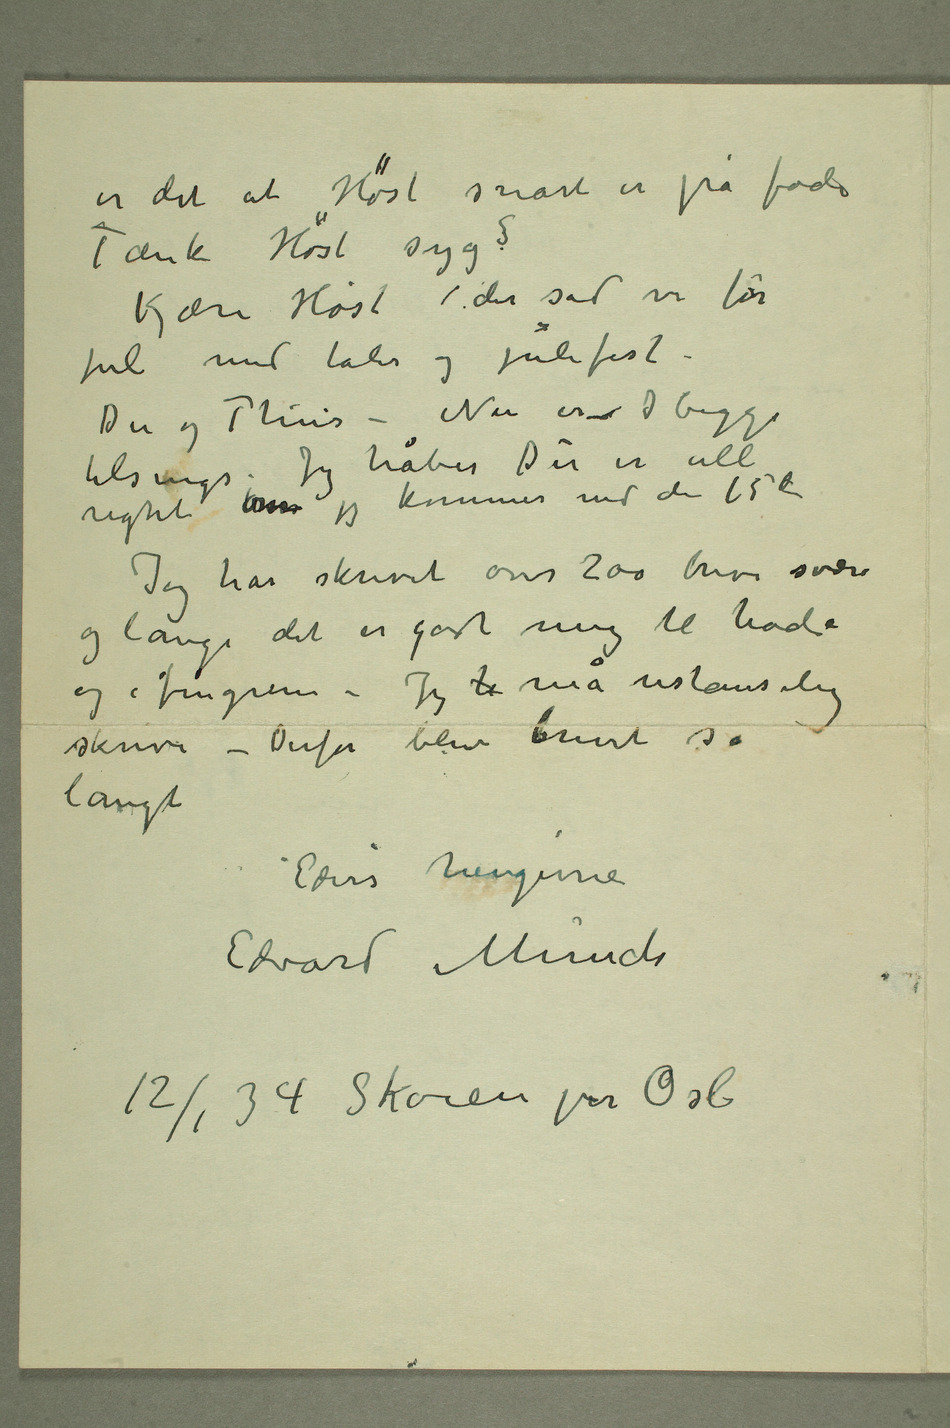 er det at Höst snart er på fode
Tænk Höst syg?
Kjære Höst der sad vi før
jul med taler og julefest –
Du og Thiis – Nu er I begge
tilsengs. Jeg håber Du er all
right om jeg kommer ned den 15de
Jeg har skrevet over 200 breve svære
og lange det er gåt mig til hode
og i fingrene – Jeg må ustanselig
skrive – Derfor blev brevet så
langt
Eders hengivne
Edvard Munch
12/1 34 Skøien per Oslo